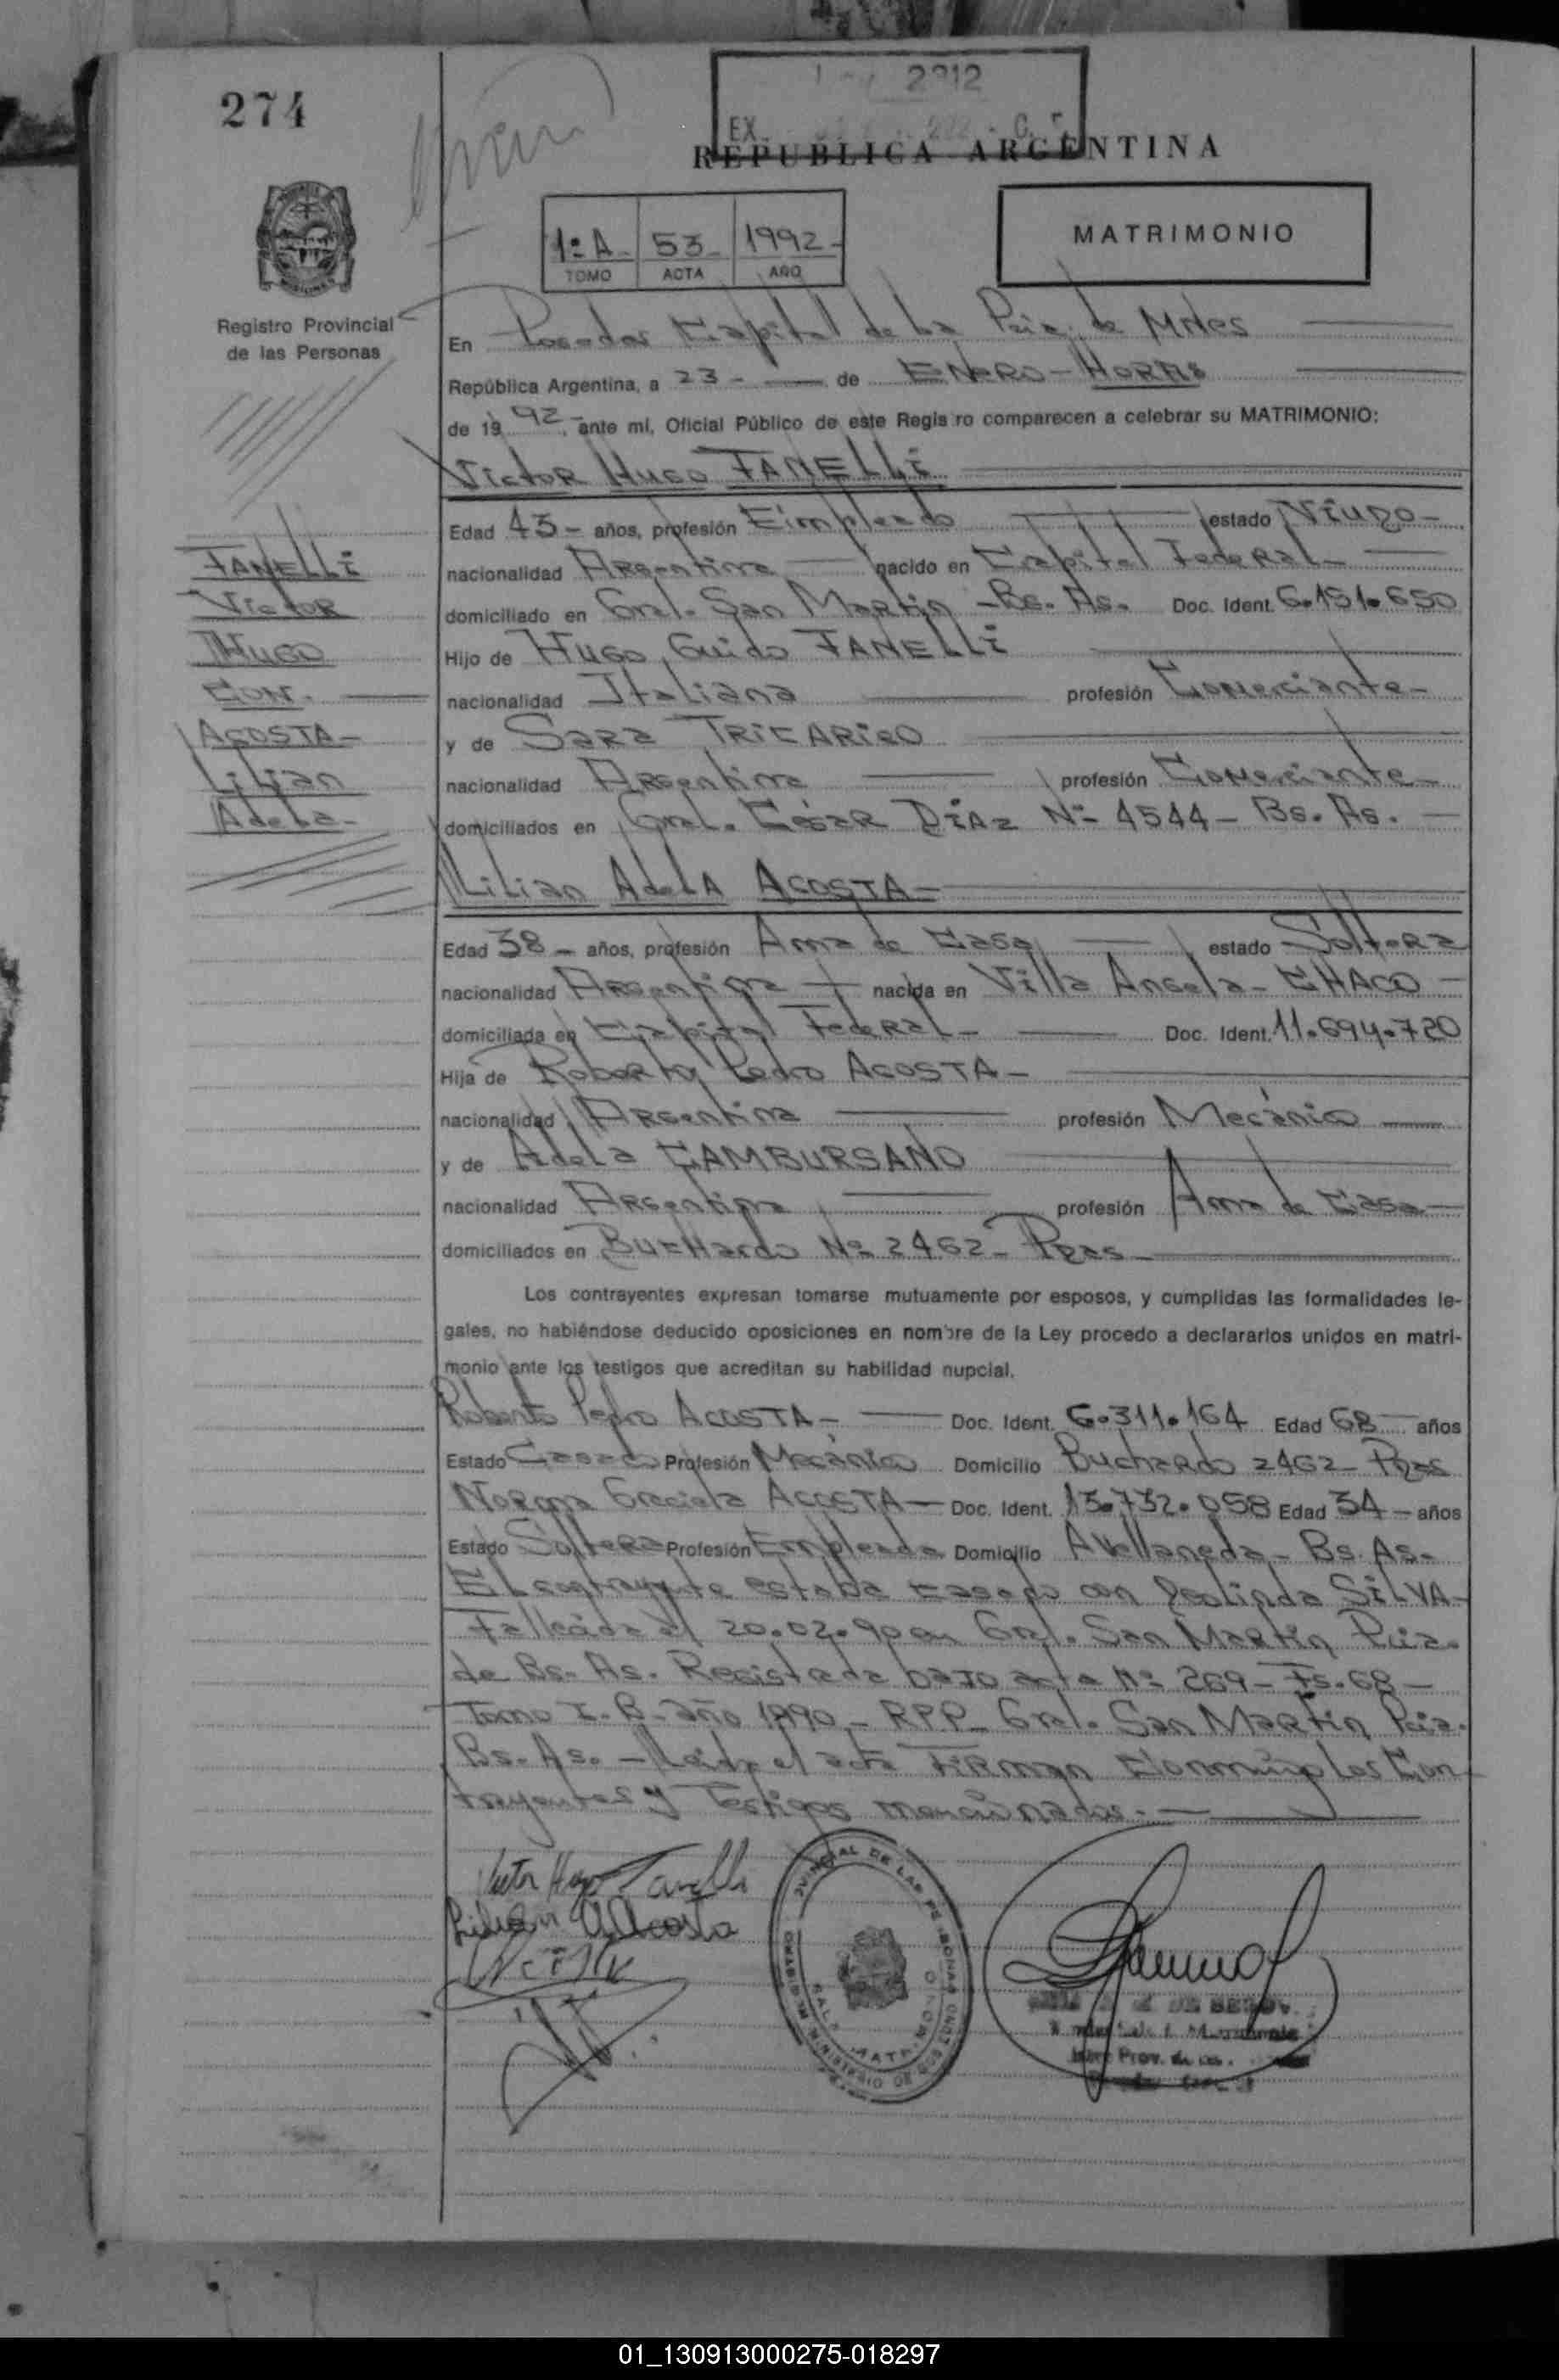 274
2912
EX.
REPUBLICA ARGENTINA
1ºA- 53- 1992-
TOMO ACTA AÑO
MATRIMONIO
Registro Provincial
de las Personas
En Posadas Capital de La Pcia. de Mnes
República Argentina, a 23 - de ENERO - HORAS
de 1992, ante mí, Oficial Público de este Registro comparecen a celebrar su MATRIMONIO:
Victor Hugo FANELLi
Edad 43 - años, profesión Empleado estado Viudo -
nacionalidad Argentina nacido en Capital Federal -
domiciliado en Gral. San Martin - Bs. As. Doc. Ident. 6.151.650
Hijo de Hugo, Guido FANELLi
nacionalidad Italiana profesión Comerciante -
y de Sara TRICARICO
nacionalidad Argentina profesión Comerciante -
domiciliados en Gral. César Diaz Nº 4544 - Bs. As.
FANELLi
Victor
Hugo
CON.
ACOSTA -
Lilian
Adela -
Lilian Adela ACOSTA -
Edad 38 - años, profesión Ama de Casa estado Soltera
nacionalidad Argentina nacida en Villa Angela - CHACO -
domiciliada en Capital Federal - Doc. Ident. 11.694.720
Hija de Roberto Pedro ACOSTA -
nacionalidad Argentina profesión Mecánico
y de Adela GAMBURSANO
nacionalidad Argentina profesión Ama de Casa -
domiciliados en BucHardo Nº 2462 - Pzas -
Los contrayentes expresan tomarse mutuamente por esposos, y cumplidas las formalidades le-
gales, no habiéndose deducido oposiciones en nombre de la Ley procedo a declararlos unidos en matri-
monio ante los testigos que acreditan su habilidad nupcial.
Roberto Pedro ACOSTA - Doc. Ident. 6.311.164 Edad 68 años
Estado Casado Profesión Mecánico Domicilio Buchardo 2462 - Pzas
Norma Graciela ACOSTA - Doc. Ident. 13.732.058 Edad 34 - años
Estado Soltera Profesión Empleada Domicilio Avellaneda - Bs. As.
El contrayente estaba casado con SILVA -
Fallecida el 20.02.90 en Gral. San Martin Pcia.
de Bs. As. Registrada bajo acta Nº 269 - Fs. 68 -
Tomo I - B - año 1990 - RPP - Gral. San Martin Pcia.
Bs. As. - Leida el acta Firman Conmigo los Con
trayentes y Testigos mencionados. -
Victor Hugo Fanelli
Lilian A Acosta
01_130913000275-018297